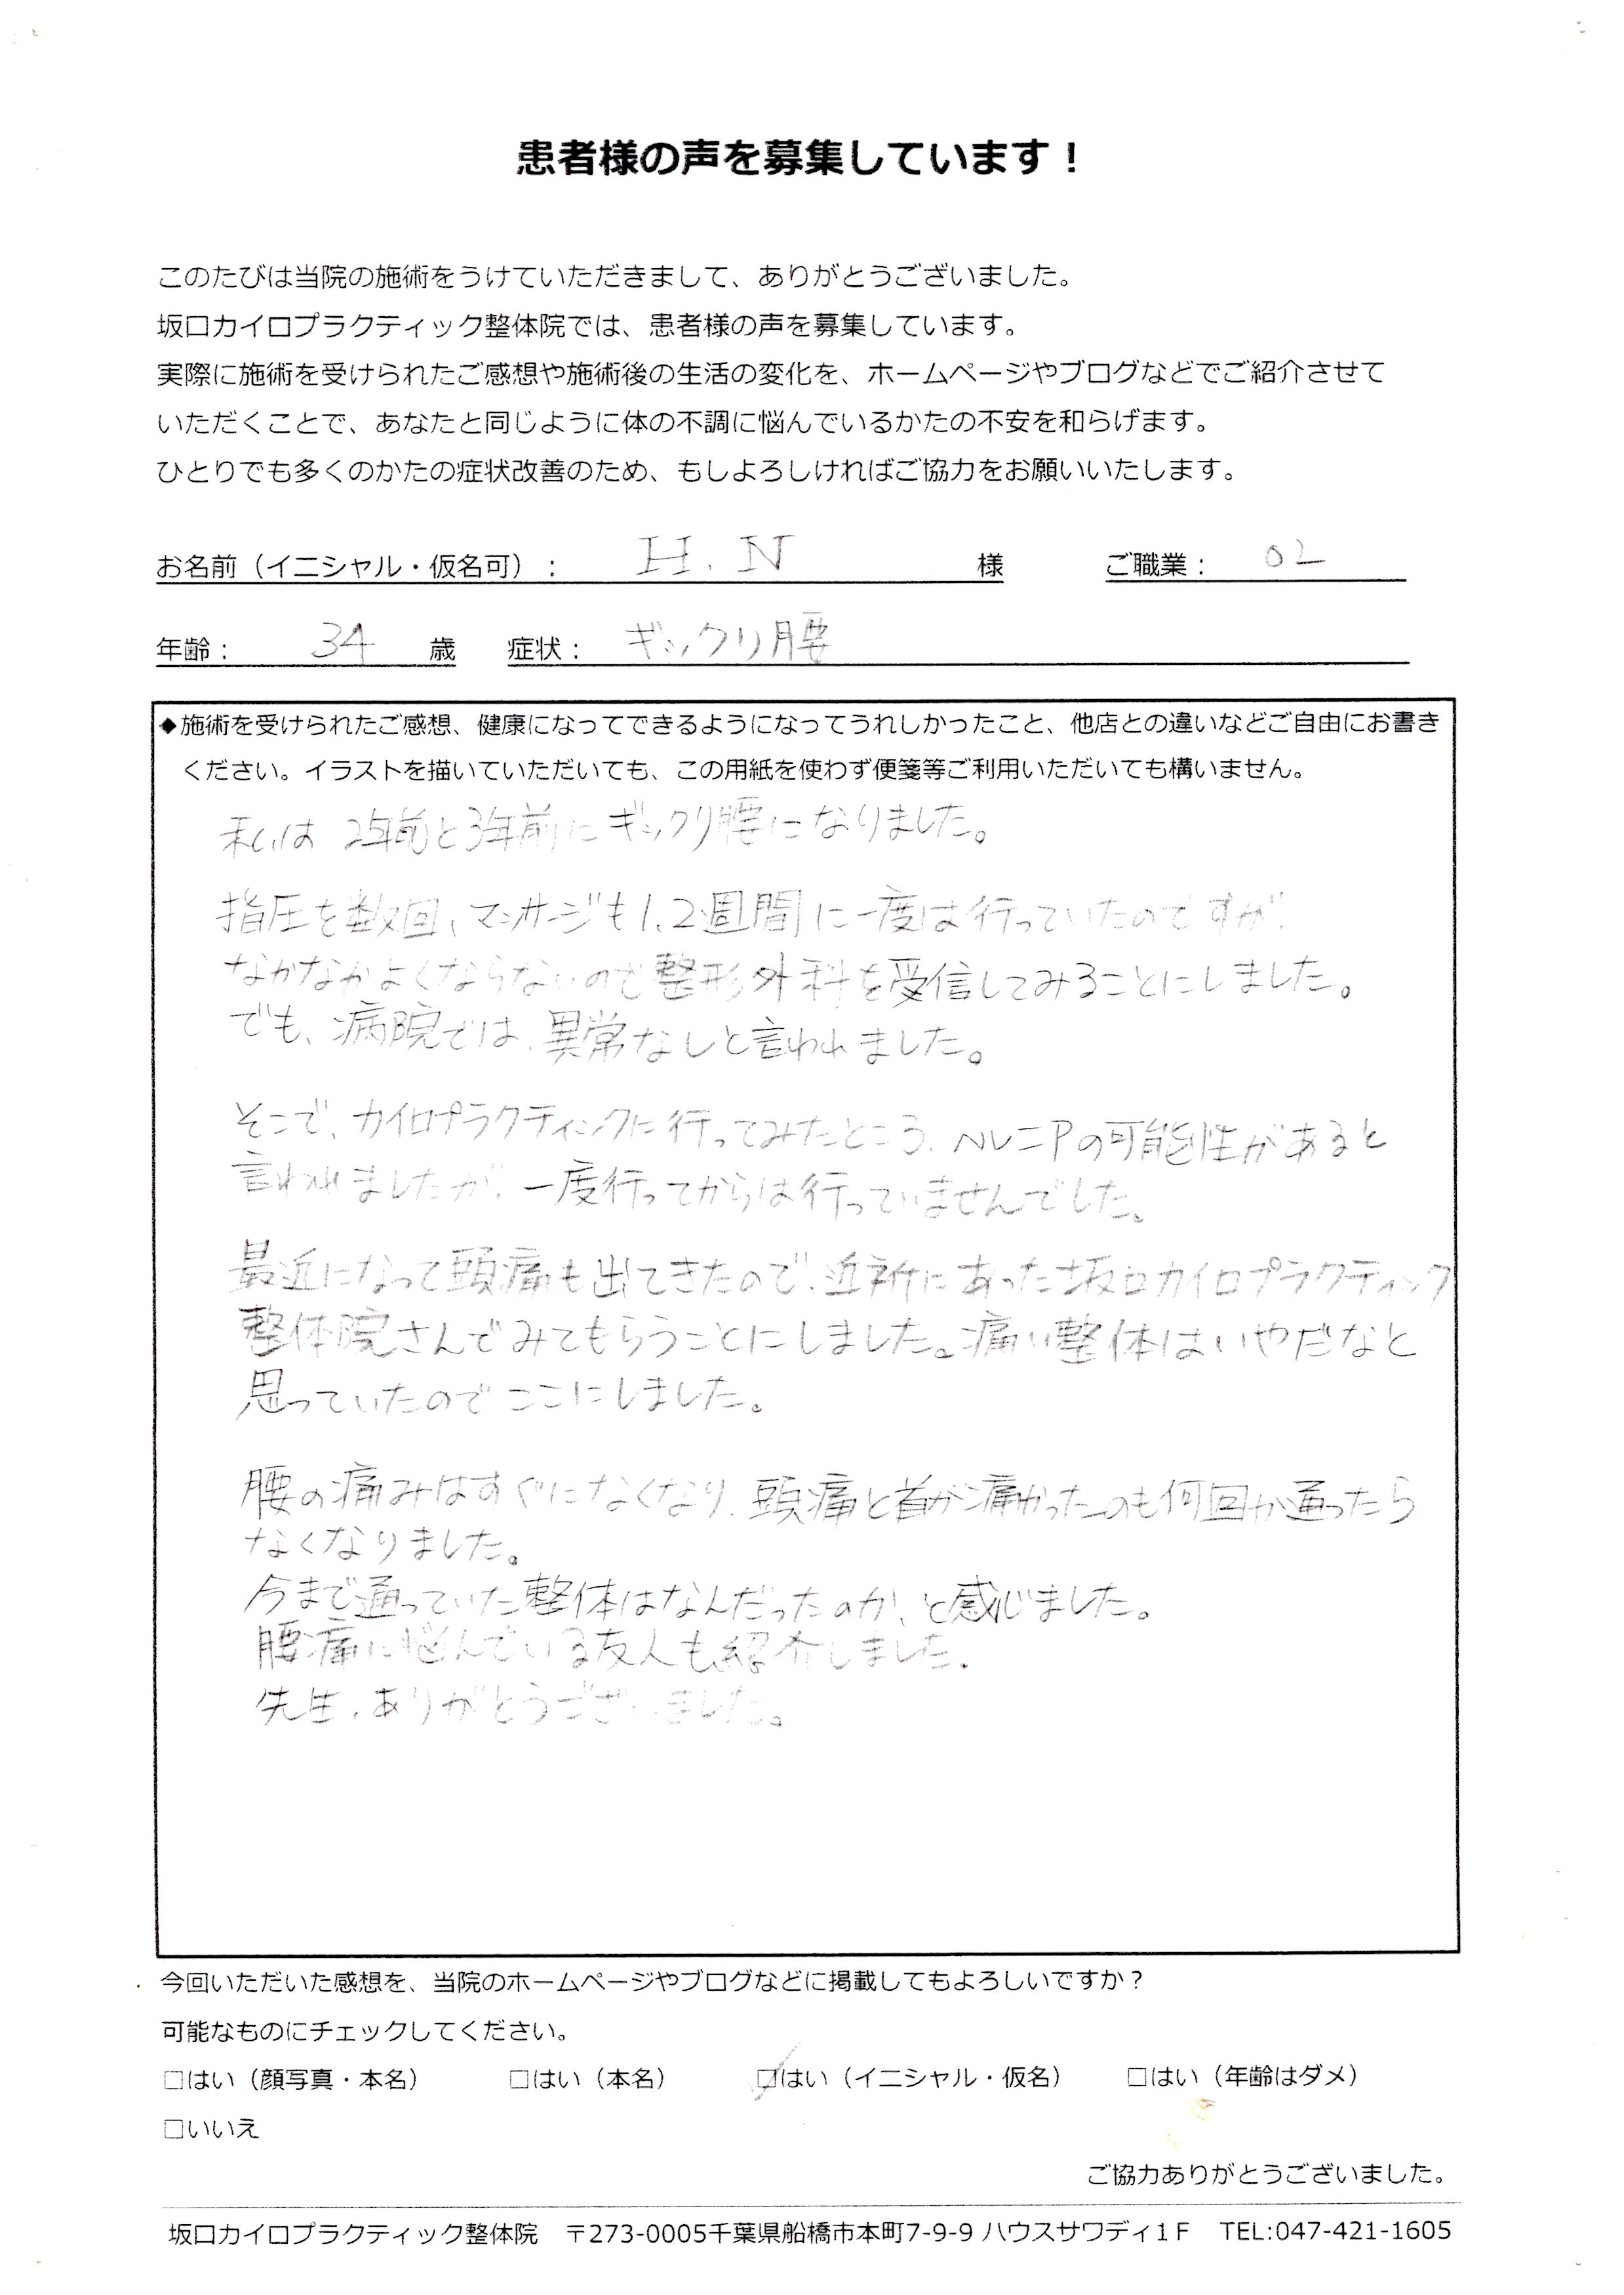 患者様の声を募集しています！
このたびは当院の施術をうけていただきまして、ありがとうございました。
坂口カイロプラクティック整体院では、患者様の声を募集しています。
実際に施術を受けられたご感想や施術後の生活の変化を、ホームページやブログなどでご紹介させて
いただくことで、あなたと同じように体の不調に悩んでいるかたの不安を和らげます。
ひとりでも多くのかたの症状改善のため、もしよろしければご協力をお願いいたします。
お名前（イニシャル・仮名可）： H.N 様 ご職業： OL
年齢： 34 歳 症状： ギックリ腰
◆施術を受けられたご感想、健康になってできるようになってうれしかったこと、他店との違いなどご自由にお書き
ください。イラストを描いていただいても、この用紙を使わず便箋等ご利用いただいても構いません。
私は 2年前と3年前にギックリ腰になりました。
指圧を数回、マッサージも1、2週間に一度は行っていたのですが、
なかなかよくならないので整形外科を受信してみることにしました。
でも、病院では、異常なしと言われました。
そこで、カイロプラクティックに行ってみたところ、ヘルニアの可能性があると
言われましたが、一度行ってからは行っていませんでした。
最近になって頭痛も出てきたので、近所にあった坂口カイロプラクティック
整体院さんでみてもらうことにしました。痛い整体はいやだなと
思っていたのでここにしました。
腰の痛みはすぐになくなり、頭痛と首が痛かったのも何回か通ったら
なくなりました。
今まで通っていた整体はなんだったのか、と感じました。
腰痛に悩んでいる友人も紹介しました。
先生、ありがとうございました。
今回いただいた感想を、当院のホームページやブログなどに掲載してもよろしいですか？
可能なものにチェックしてください。
□はい（顔写真・本名） □はい（本名） ☑はい（イニシャル・仮名） □はい（年齢はダメ）
□いいえ
ご協力ありがとうございました。
坂口カイロプラクティック整体院 〒273-0005千葉県船橋市本町7-9-9 ハウスサワディ1F TEL:047-421-1605